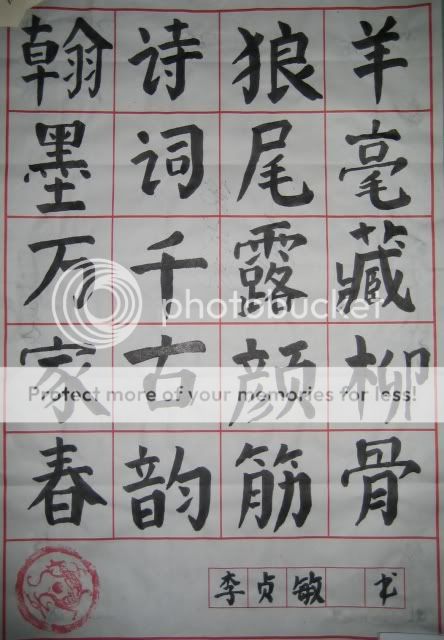 羊毫藏柳骨
狼尾露颜筋
诗词千古韵
翰墨万家春
李贞敏 书
photobucket
Protect more of your memories for less!